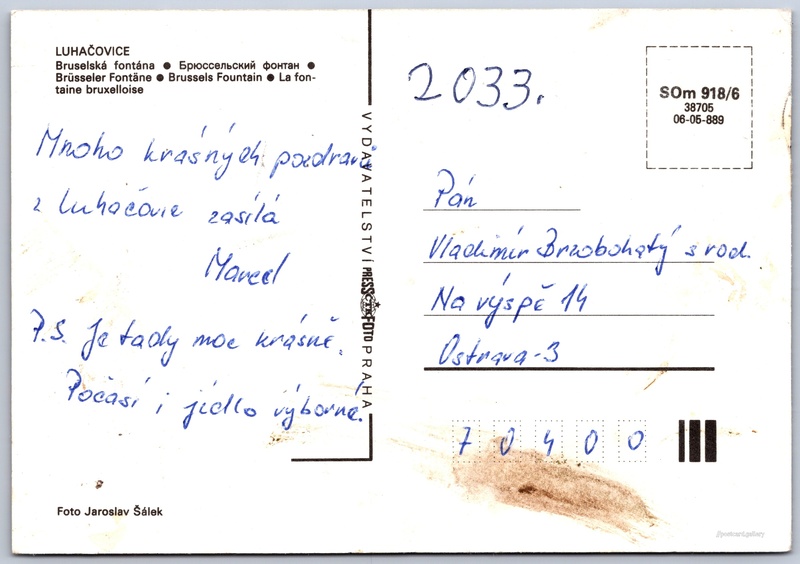 LUHAČOVICE
Bruselská fontána ● Брюссельский фонтан ●
Brüsseler Fontäne ● Brussels Fountain ● La fon-
taine bruxelloise
Mnoho krásných pozdravů
z Luhačovic zasílá
Marcel
P.S. Je tady moc krásně.
Počasí i jídlo výborné.
Foto Jaroslav Šálek
VYDAVATELSTVÍ PRESSFOTO PRAHA
2033.
SOm 918/6
38705
06-05-889
Pán
Vladimír Brzobohatý s rod.
Na výspě 14
Ostrava-3
7 0 4 0 0